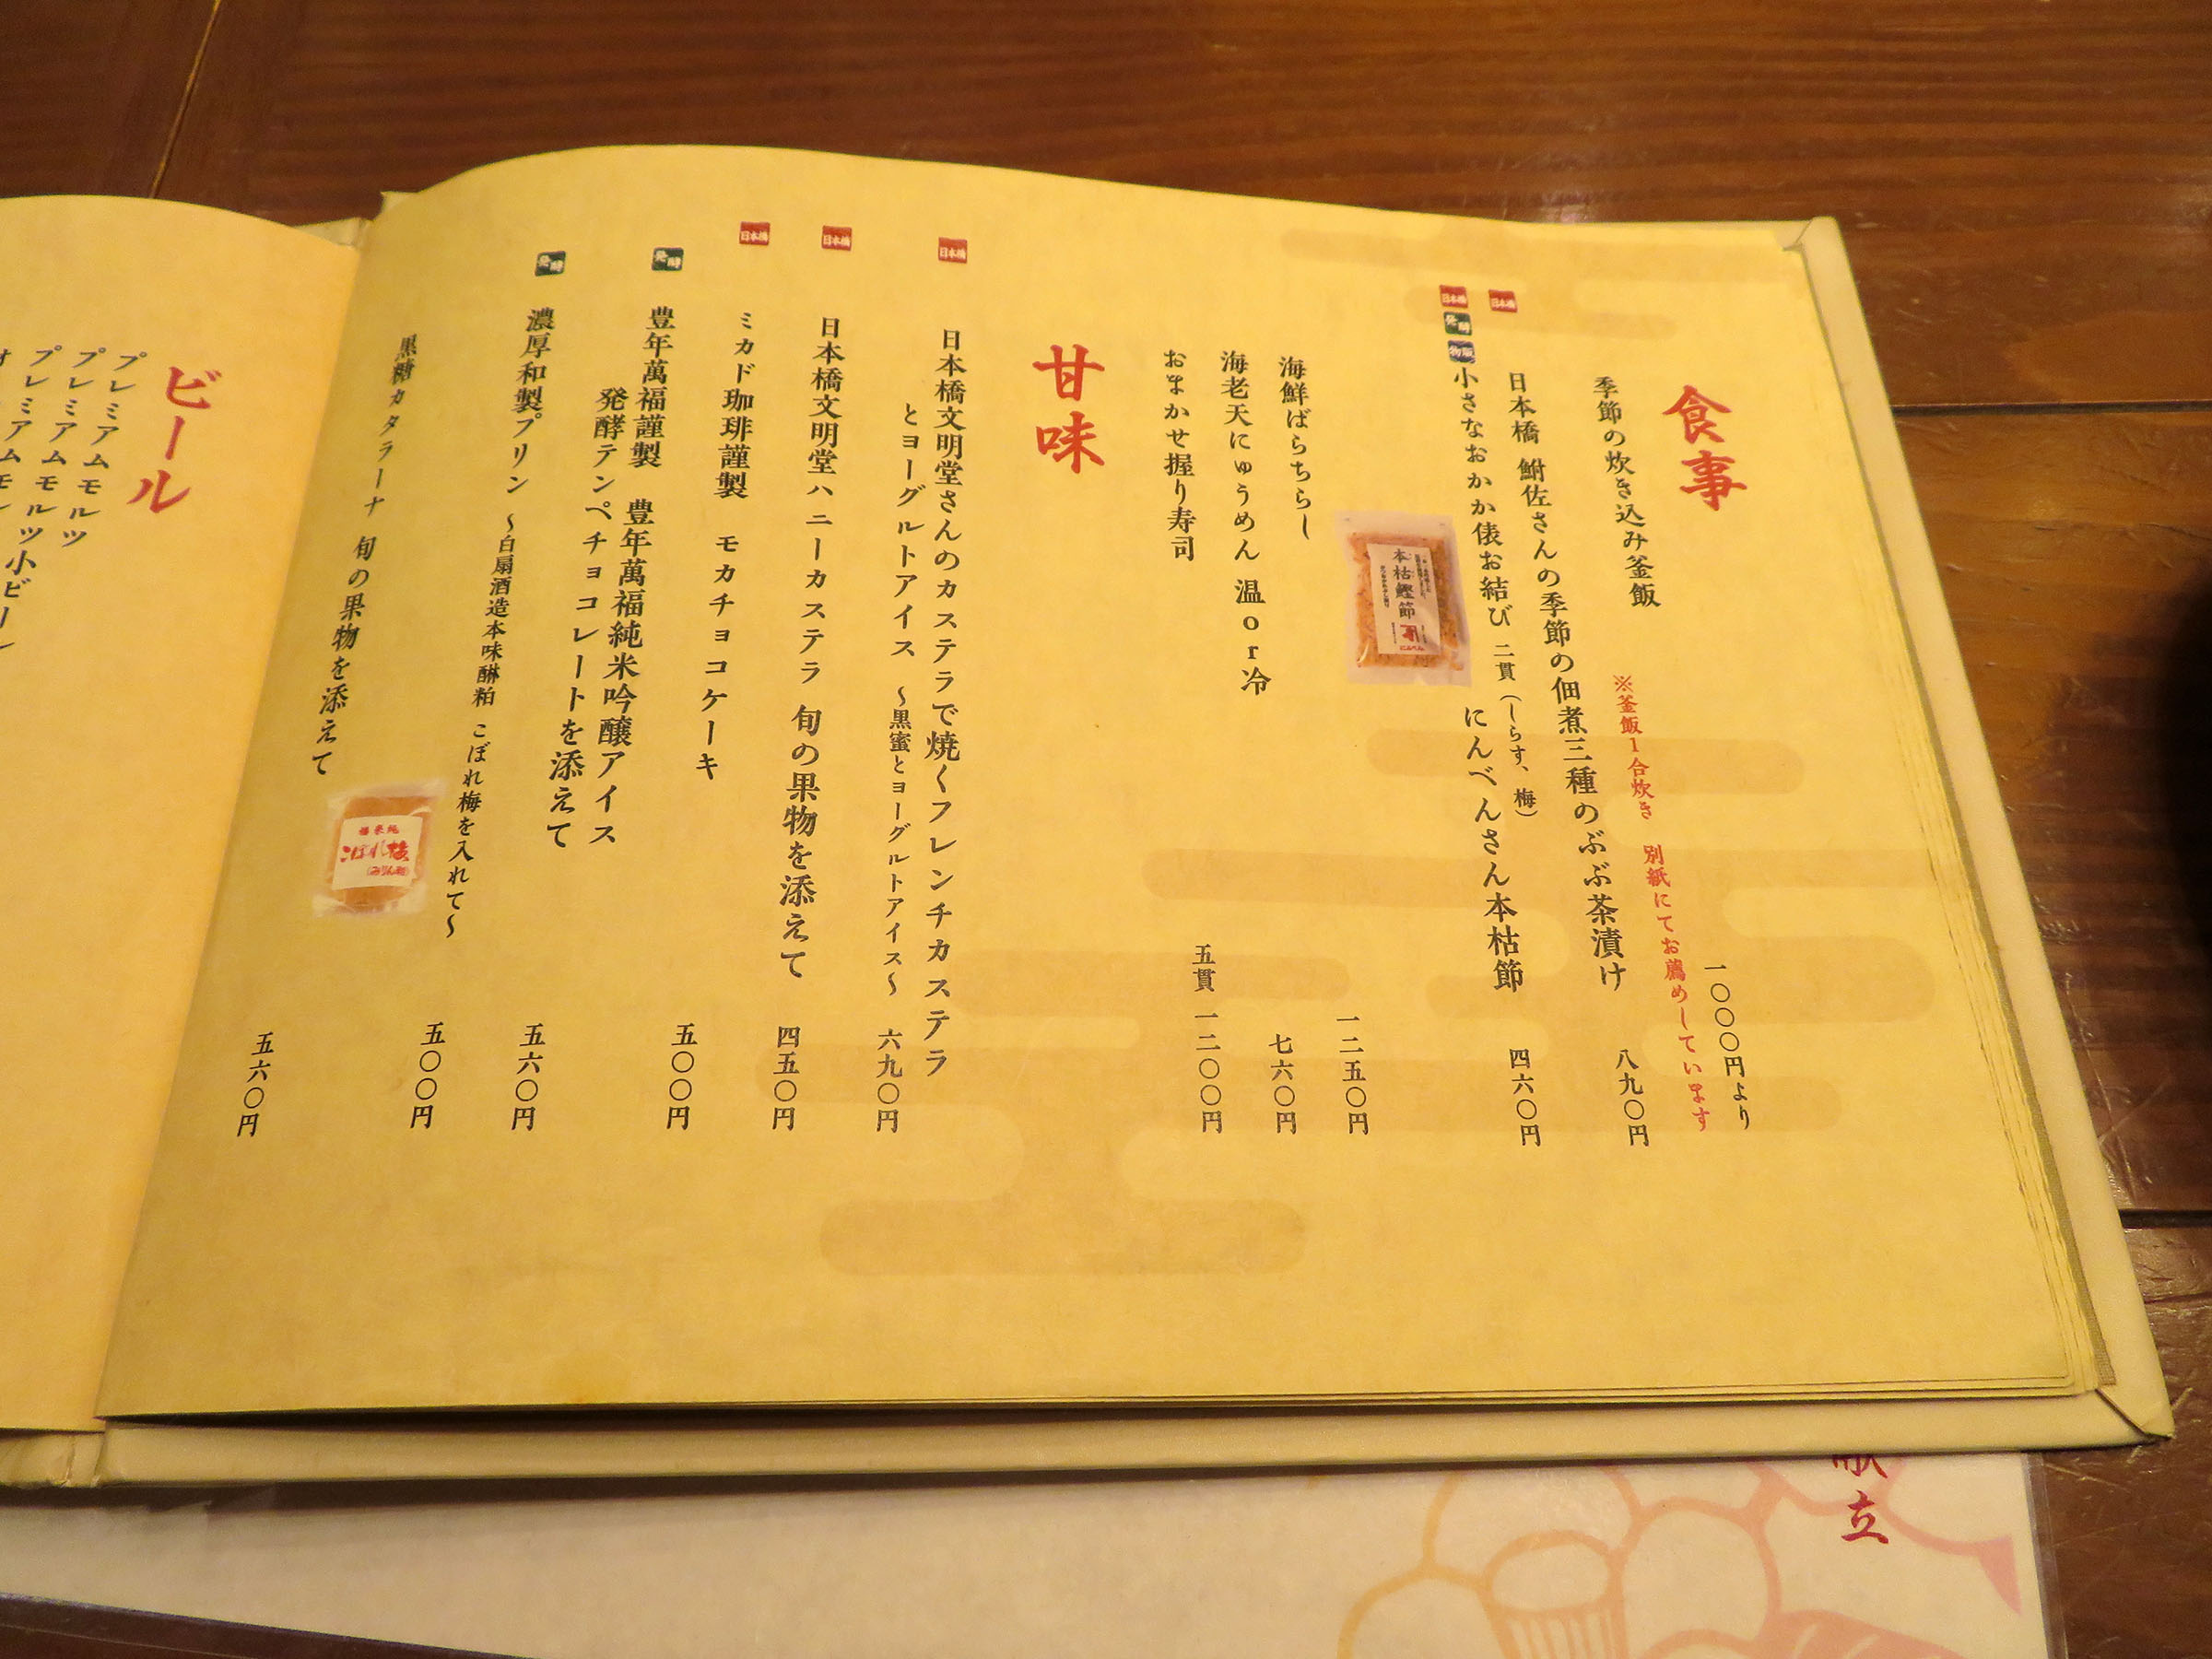 食事
季節の炊き込み釜飯
一〇〇〇円より
※釜飯1合炊き 別紙にてお薦めしています
日本橋
日本橋 鮒佐さんの季節の佃煮三種のぶぶ茶漬け 八九〇円
日本橋
発酵
物販
小さなおかか俵お結び 二貫(しらす、梅)
にんべんさん本枯節 四六〇円
本枯鰹節
にんべん
海鮮ばらちらし 一二五〇円
海老天にゅうめん 温or冷 七六〇円
おまかせ握り寿司 五貫 一二〇〇円
甘味
日本橋
日本橋文明堂さんのカステラで焼くフレンチカステラ
とヨーグルトアイス ~黒蜜とヨーグルトアイス~ 六九〇円
日本橋
日本橋文明堂ハニーカステラ 旬の果物を添えて 四五〇円
日本橋
ミカド珈琲謹製 モカチョコケーキ 五〇〇円
発酵
豊年萬福謹製 豊年萬福純米吟醸アイス
発酵テンペチョコレートを添えて 五六〇円
発酵
濃厚和製プリン ~白扇酒造本味醂粕 こぼれ梅を入れて~ 五〇〇円
福来純
こぼれ梅
(みりん粕)
黒糖カタラーナ 旬の果物を添えて 五六〇円
ビール
プレミアムモルツ
プレミアムモルツ
プレミアムモルツ小ビール
立